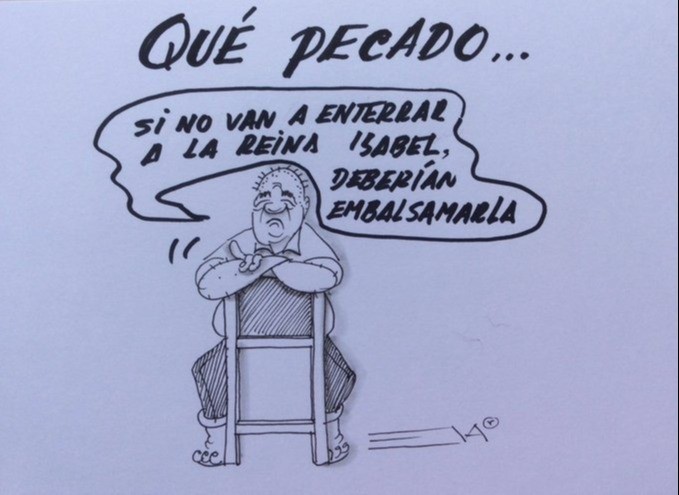 QUÉ PECADO...
SI NO VAN A ENTERRAR
A LA REINA ISABEL,
DEBERÍAN
EMBALSAMARLA